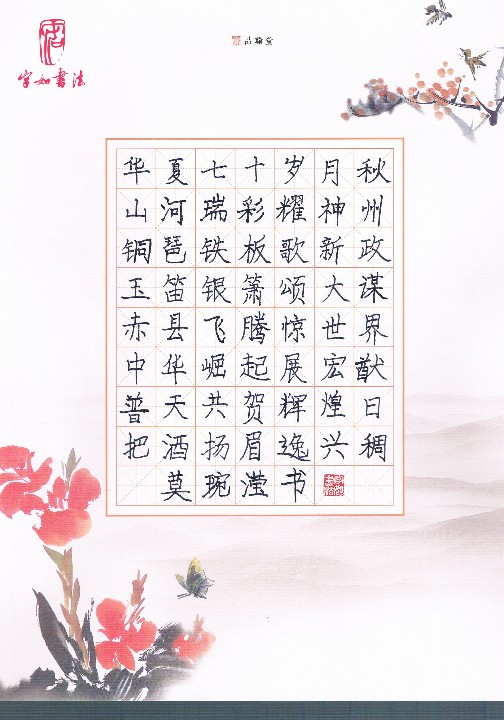 字如書法
品翰堂
华夏七十岁月秋
山河瑞彩耀神州
铜琶铁板歌新政
玉笛银箫颂大谋
赤县飞腾惊世界
中华崛起展宏猷
普天共贺辉煌日
把酒扬眉逸兴稠
莫琬滢书